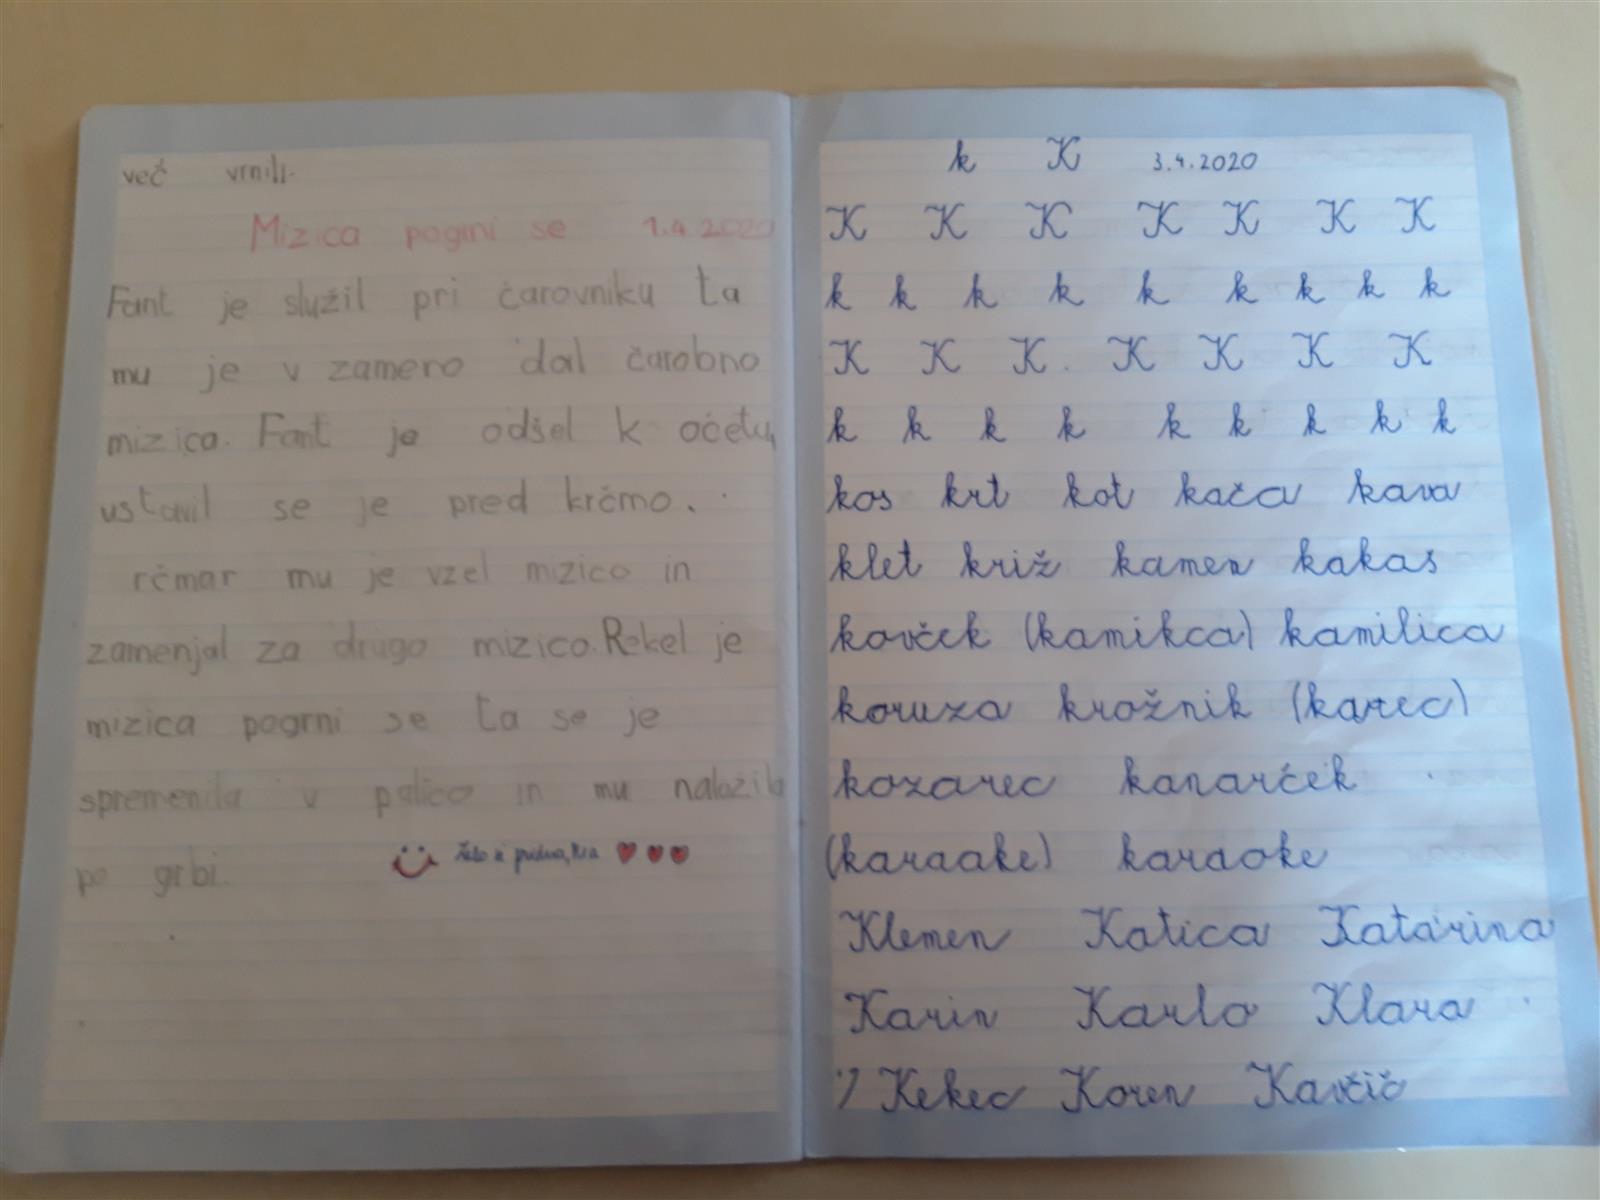 več vrnili.
Mizica pogrni se 1.4.2020
Fant je služil pri čarovniku ta
mu je v zameno dal čarobno
mizica. Fant je odšel k očetu,
ustavil se je pred krčmo.
rčmar mu je vzel mizico in
zamenjal za drugo mizico. Rekel je
mizica pogrni se ta se je
spremenila v palico in mu naložila
po grbi.
Zelo si pridna,
k K 3.4.2020
K K K K K K K
k k k k k k k k k
K K K K K K K
k k k k k k k k k
kos krt kot kača kava
klet križ kamen kakas
kovček (kamikca) kamilica
koruza krožnik (karec)
kozarec kanarček
(karaake) karaoke
Klemen Katica Katarina
Karin Karlo Klara
Kekec Koren Kavčič